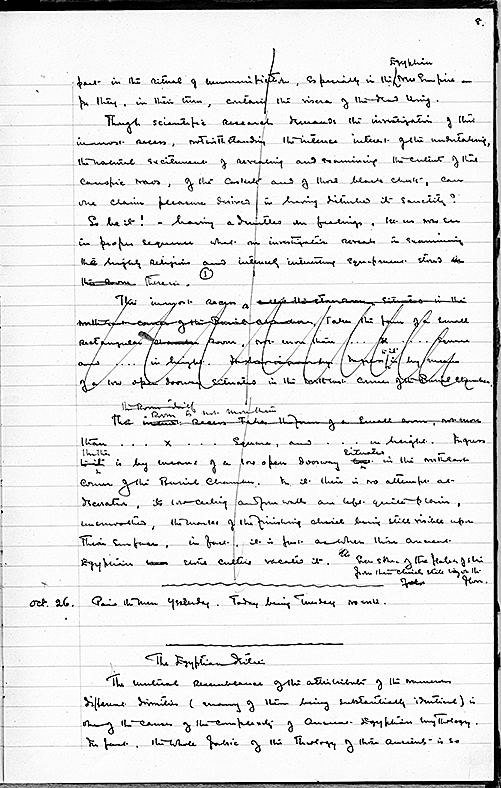 8.
Egyptian
part in the ritual of mummification, especially in the New Empire —
for they, in their turn, contain the viscera of the dead King.
Though scientific research demands the investigation of this
innermost recess, notwithstanding the intense interest of the undertaking,
the natural excitement of revealing and examining the content of this
Canopic , of the caskets and of those black chests, can
one claim pleasure derived in having disturbed its sanctity?
So be it! – having admitted our feelings, let us now see
in proper sequence what our investigation reveals in examining
the highly religious and intensely interesting equipment stored in
the room therein. (1)
This innermost recess, called the situated in the
northeast corner of the Burial Chamber, takes the form of a small
rectangular chamber room, not more than ... x ... square
and ... in height. by means
of a low open doorway situated in the northeast corner of the Burial Chamber.
the room itself
room is not more than
This recess takes the form of a small room, not more
than ... x ... square, and ... in height. Ingress
thither situated
to it is by means of a low open doorway in the northeast
corner of the Burial Chamber. In it there is no attempt at
decoration, its low ceiling and four walls are left quite plain,
unsmoothed, the marks of the finishing chisel being still visible upon
their surface, in fact, it is just as when those ancient
Egyptian stone cutters vacated it. Even some of the flakes of
from their chisels still lay on the
floor.
Oct. 26. Paid the men yesterday. Today being Tuesday no work.
The Egyptian Deities
The mutual resemblance of the attributes of the numerous
different divinities (many of them being substantially identical) is
among the causes of the complexity of ancient Egyptian mythology.
In fact, the whole fabric of the theology of those ancients is so